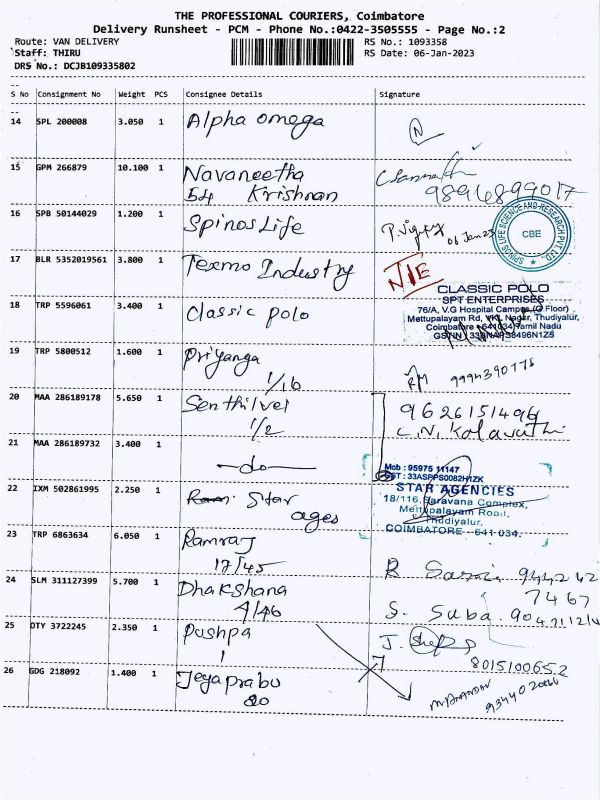 THE PROFESSIONAL COURIERS, Coimbatore
Delivery Runsheet - PCM - Phone No.:0422-3505555 - Page No.:2
Route: VAN DELIVERY RS No.: 1093358
Staff: THIRU RS Date: 06-Jan-2023
DRS No.: DCJB109335802
S No Consignment No Weight PCS Consignee Details Signature
14 SPL 200008 3.050 1 Alpha omega N
15 GPM 266879 10.100 1 Navaneetha
54 Krishnan 9894899017
16 SPB 50144029 1.200 1 Spinos Life 06 Jan 23
SPINOS LIFE SCIENCE AND RESEARCH PVT LTD
CBE
17 BLR 5352019561 3.800 1 Texmo Industry N/E
CLASSIC POLO
SPT ENTERPRISES
18 TRP 5596061 3.400 1 Classic polo
76/A, V.G Hospital Campus (G Floor)
Mettupalayam Rd, VKL Nagar, Thudiyalur,
Coimbatore - 641034 Tamil Nadu
19 TRP 5800512 1.600 1 Priyanga
1/16 RM 9994390775
20 MAA 286189178 5.650 1 Senthilvel 9626151496
1/2 C.N. Kalavathi
21 MAA 286189732 3.400 1 -do-
Mob : 95975 11147
GST : 33ASPPS0082H1ZK
22 IXM 502861995 2.250 1 Star
ages
STAR AGENCIES
18/116, Saravana Complex,
Mettupalayam Road,
Thudiyalur,
COIMBATORE - 641 034.
23 TRP 6863634 6.050 1 Ramraj
17/45
24 SLM 311127399 5.700 1 Dhakshana
4/46 S. Suba.
25 OTY 3722245 2.350 1 Pushpa
1 8015100652
26 GDG 218092 1.400 1 Jeyaprabu
20